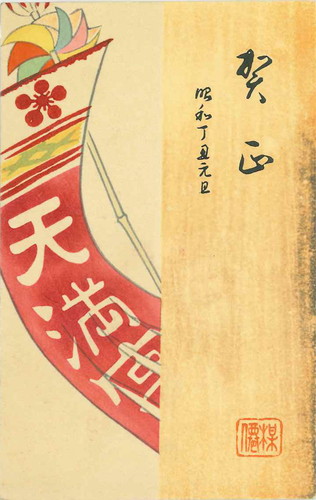 賀正
昭和丁丑元旦
天満宮